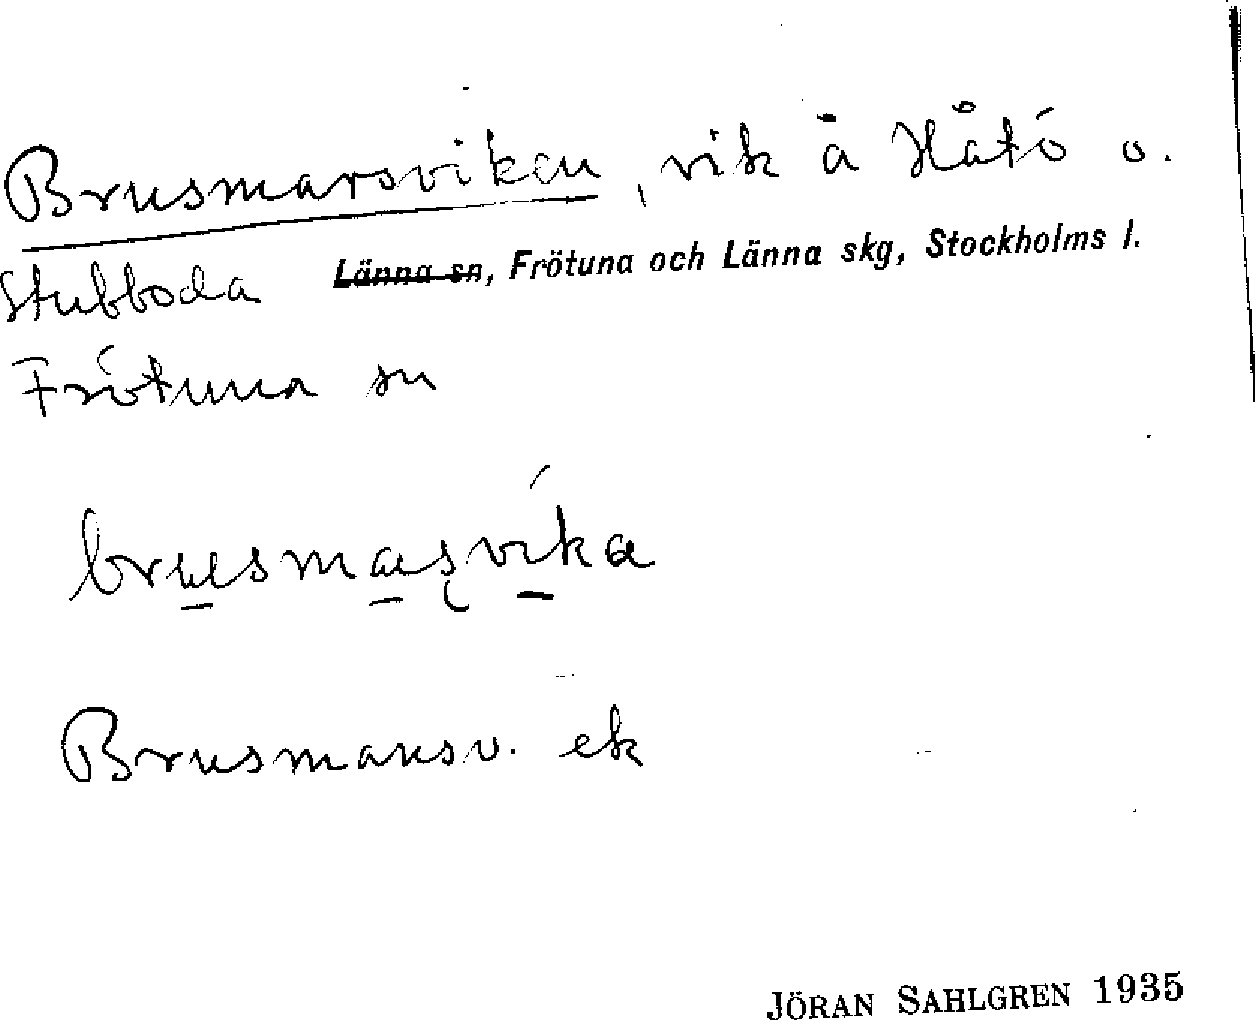 Brusmarsviken, vik å Håtö o.
Stubboda Länna sn, Frötuna och Länna skg, Stockholms l.
Frötuna sn
brusmasvika
Brusmansv. ek
JÖRAN SAHLGREN 1935